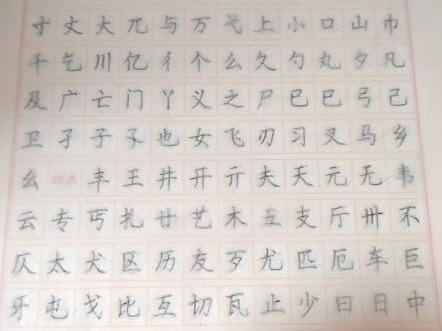 寸丈大兀与万弋上小口山巾
千乞川亿彳个么久勺丸夕凡
及广亡门丫义之尸已巳弓己
卫孑子孓也女飞刃习叉马乡
幺四画丰王井开亓夫天元无韦
云专丐扎廿艺木五支厅卅不
仄太犬区历友歹尤匹厄车巨
牙屯戈比互切瓦止少曰日中